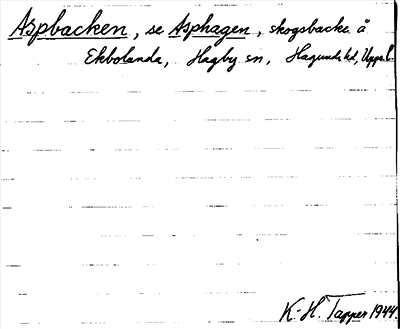 Aspbacken, se Asphagen, skogsbacke å
Ekbolanda, Hagby sn, Hagunda hd, Upps. l.
K.-H. Tapper 1944.